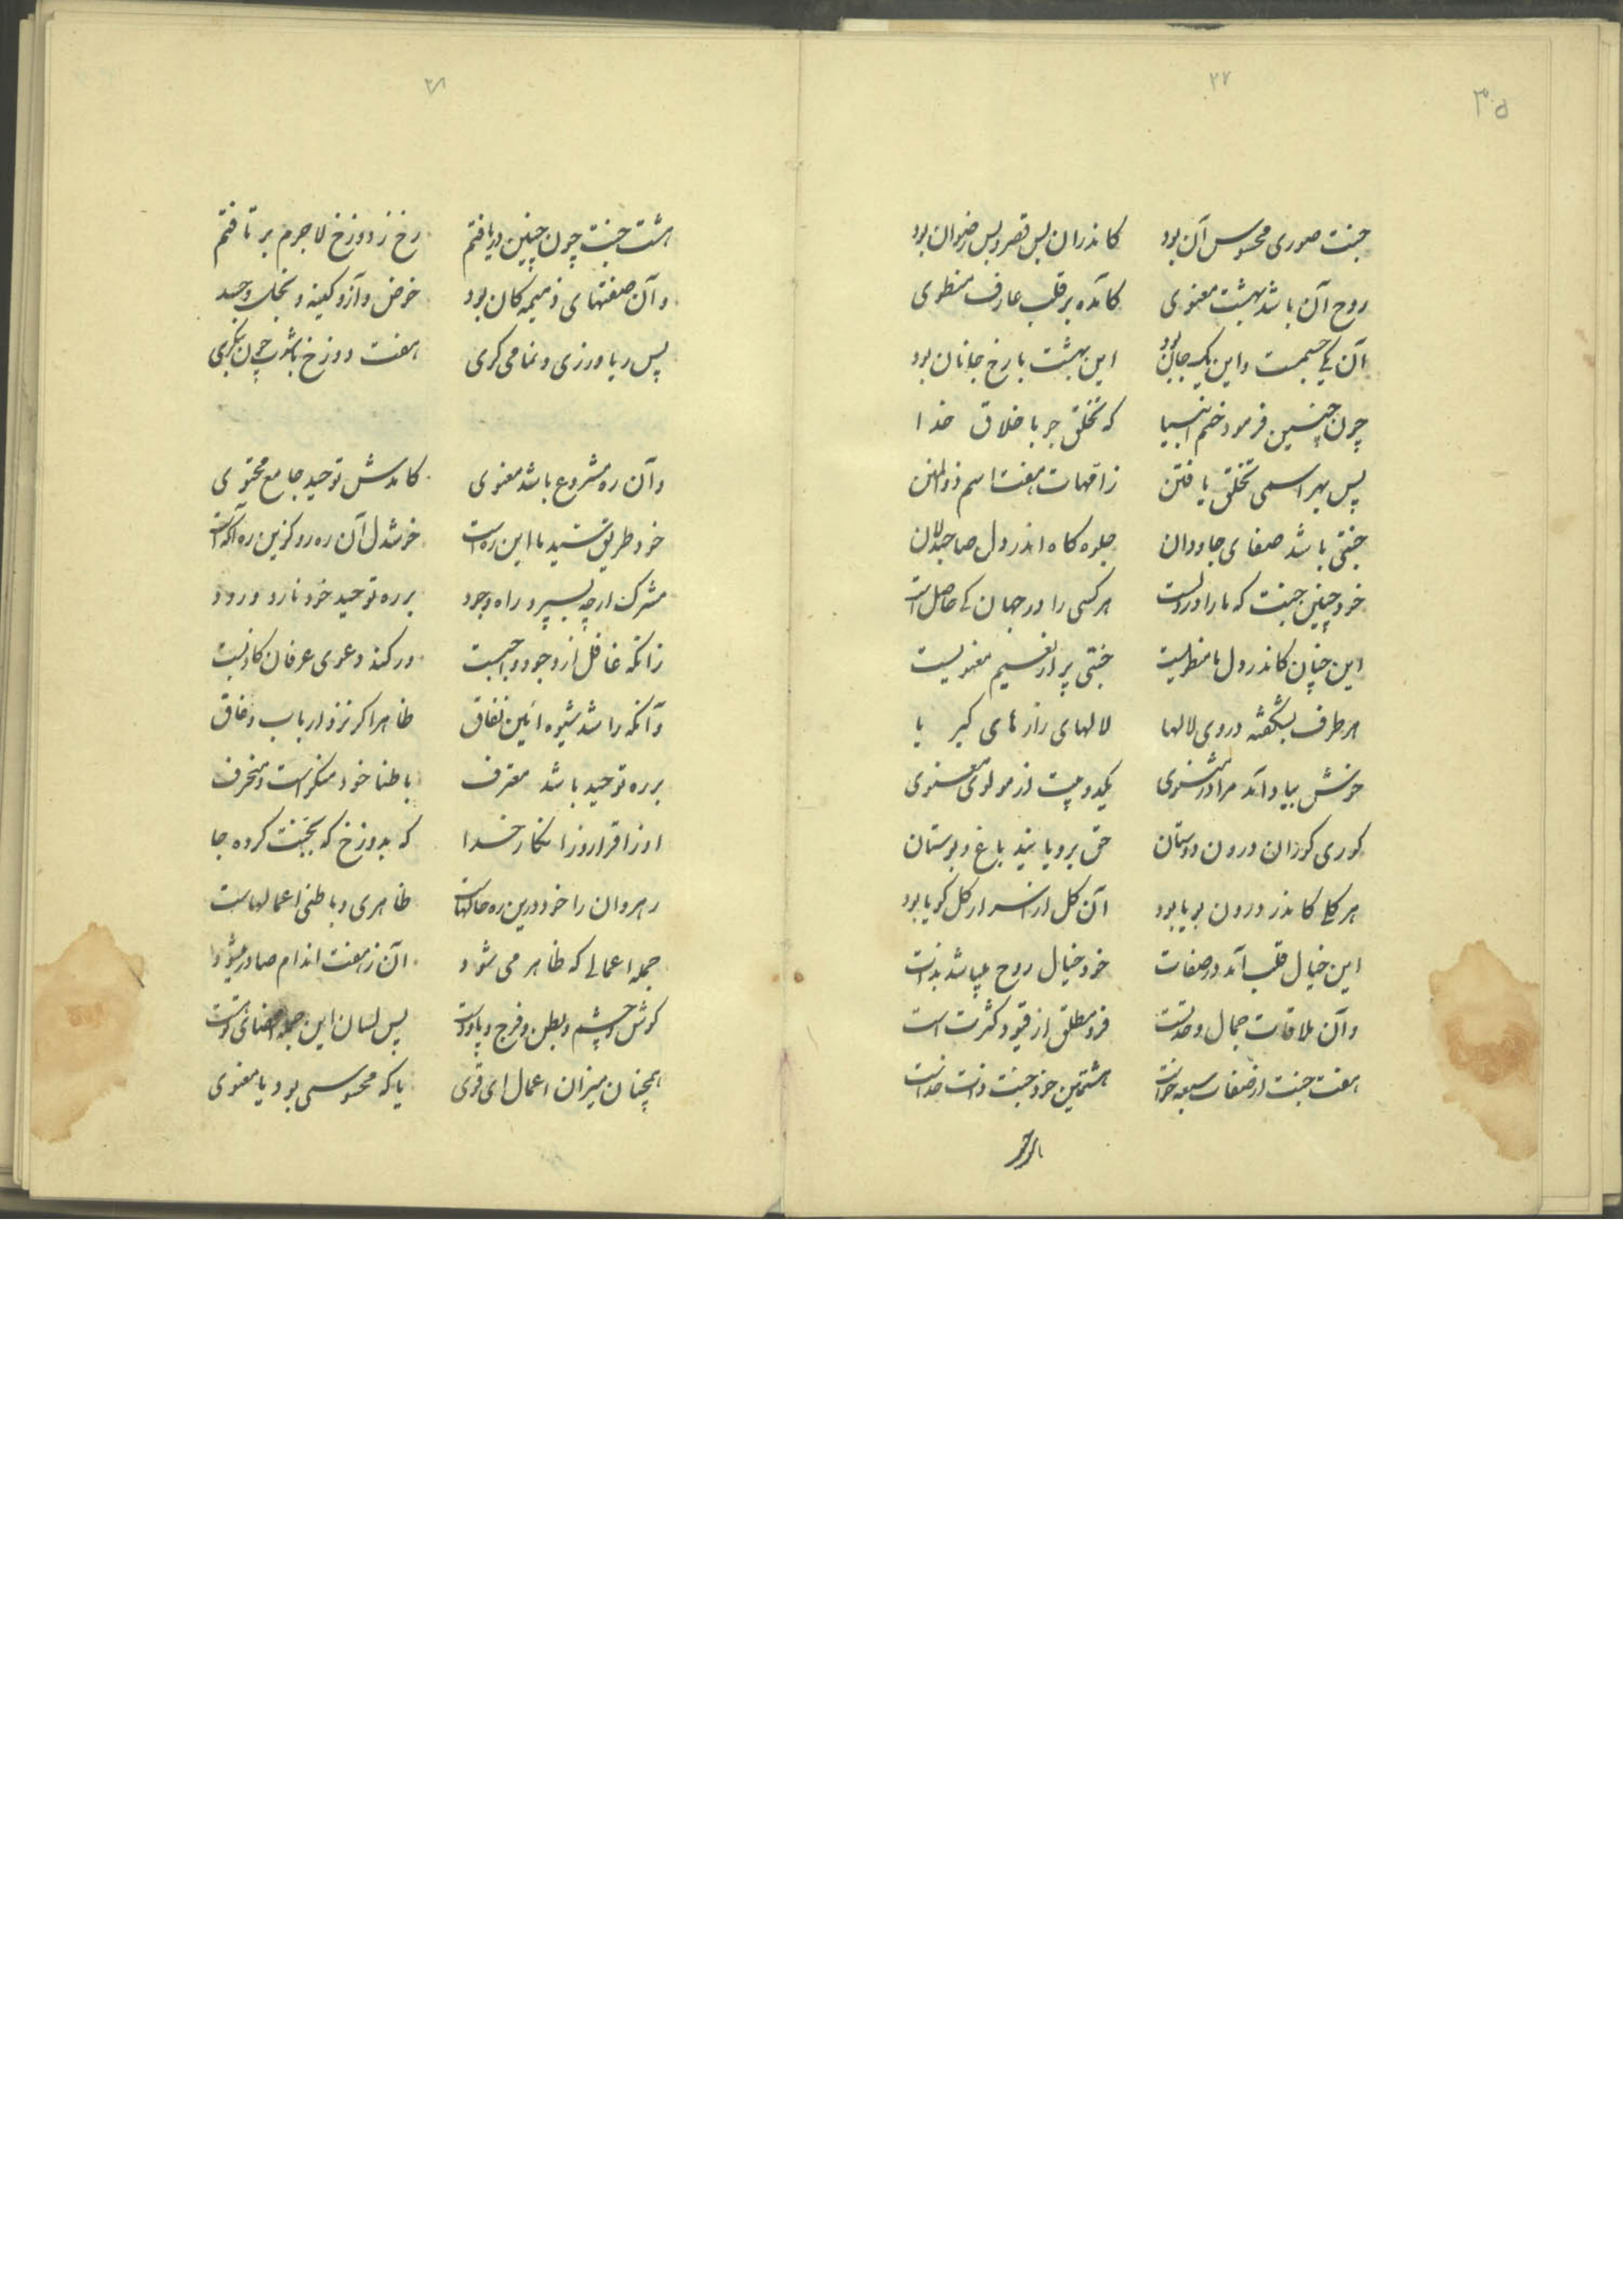 ۳۰۵
۲۷
جنت صوری محسوس آن بود کاندران بس قصر و بس رضوان بود
روح آن باشد بهشت معنوی کآمده بر قلب عارف منطوی
آن یکی جسمست و این یک جان بود این بهشت با رخ جانان بود
چون چنین فرمود ختم انبیا که تخلق جو باخلاق خدا
پس بهر اسمی تخلق یافتن ز امهات هفت اسم ذو المنن
جنتی باشد صفای جاودان جلوه کاه اندر دل صاحبدلان
خود چنین جنت که ما را در دلست هر کسی را در جهان کی حاصل است
این چنان کاندر دل ما منطویست جنتی پر از نعیم معنویست
هر طرف بشکفته در وی لالها لالهای رازهای کبریا
خوش بیاد آمد مرا در مثنوی یکدو بیت از مولوی معنوی
کوری کوران درون دوستان حق برویانید باغ و بوستان
هر کلی کاندر درون بویا بود آن کل از اسرار کل کویا بود
این خیال قلب آمد در صفات خود خیال روح میباشد بذات
وآن ملاقات جمال وحدتست فرد مطلق از قیود کثرت است
هفت جنت از صفات سبعه خواست هشتمین خود جنت ذات خداست
۲۸
هشت جنت چون چنین دریافتم رخ ز دوزخ لاجرم بر تافتم
وآن صفتهای ذمیمه کان بود خوض و آز و کینه و بخل و حسد
پس ریا ورزی و نمامی کری هفت دوزخ باشد چون بنگری
وآن ره مشروع باشد معنوی کامدش توحید جامع محتوی
خود طریق سید ما این ره است خوشدل آن رهرو کزین ره آکه است
مشرک ار چه بسپرد راه وجود بر ره توحید خود نارد ورود
زانکه غافل از وجود واجبست ور کند دعوی عرفان کاذبست
وآنکه را شد شیوه آئین نفاق ظاهرا کر نزد ارباب وفاق
بر ره توحید باشد معترف باطنا خود منکر است و منحرف
او ز اقرار و ز انکار خدا که بدوزخ که بجنت کرده جا
رهروان را خود درین ره حالهاست ظاهری و باطنی اعمالهاست
جمله اعمالی که ظاهر می شود آن ز هفت اندام صادر میشود
کوش و چشم و بطن و فرج و پا و دست پس لسان این جمله
همچنان میزان اعمال ای قوی یا که محسوسی بود یا معنوی